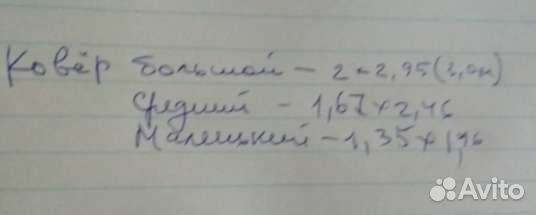 Ковёр большой - 2 × 2,95
средний - 1,67 × 2,46
Маленький - 1,35 × 1,96
Avito